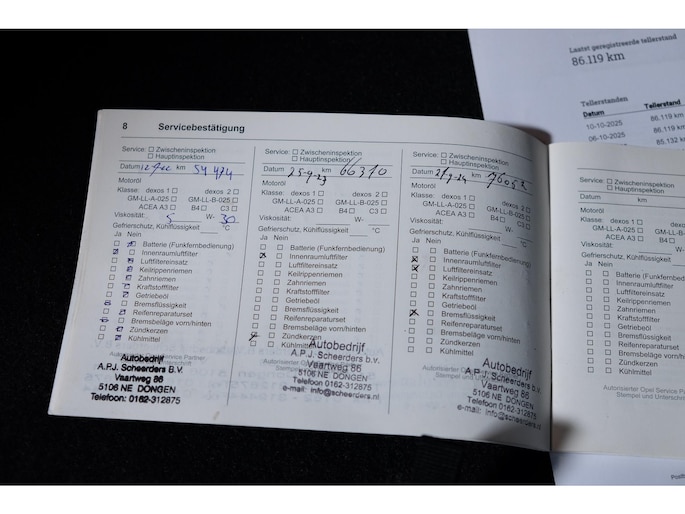 Laatst geregistreerde tellerstand
86.119 km
Tellerstanden
Datum Tellerstand
10-10-2025 86.119 km
06-10-2025 86.119 km
85.132 km
8 Servicebestätigung
Service: □ Zwischeninspektion
□ Hauptinspektion
Datum km 54 474
Motoröl
Klasse: dexos 1 □ dexos 2 □
GM-LL-A-025 □ GM-LL-B-025 □
ACEA A3 □ B4 □ C3 □
Viskosität: 5 W- 30
Gefrierschutz, Kühlflüssigkeit °C
Ja Nein
Batterie (Funkfernbedienung)
Innenraumluftfilter
Luftfiltereinsatz
Keilrippenriemen
Zahnriemen
Kraftstofffilter
Getriebeöl
Bremsflüssigkeit
Reifenreparaturset
Bremsbeläge vorn/hinten
Zündkerzen
Kühlmittel
Autobedrijf
A.P.J. Scheerders B.V.
Vaartweg 86
5106 NE DONGEN
Telefoon: 0162-312875
Service: □ Zwischeninspektion
□ Hauptinspektion
Datum 25-9-23 km 66310
Motoröl
Klasse: dexos 1 □ dexos 2 □
GM-LL-A-025 □ GM-LL-B-025 □
ACEA A3 □ B4 □ C3 □
Viskosität: W-
Gefrierschutz, Kühlflüssigkeit °C
Ja Nein
Batterie (Funkfernbedienung)
Innenraumluftfilter
Luftfiltereinsatz
Keilrippenriemen
Zahnriemen
Kraftstofffilter
Getriebeöl
Bremsflüssigkeit
Reifenreparaturset
Bremsbeläge vorn/hinten
Zündkerzen
Kühlmittel
Autobedrijf
A.P.J. Scheerders b.v.
Vaartweg 86
5106 NE DONGEN
Telefoon 0162-312875
e-mail: info@scheerders.nl
Service: □ Zwischeninspektion
□ Hauptinspektion
Datum km
Motoröl
Klasse: dexos 1 □ dexos 2 □
GM-LL-A-025 □ GM-LL-B-025 □
ACEA A3 □ B4 □ C3 □
Viskosität: W-
Gefrierschutz, Kühlflüssigkeit °C
Ja Nein
Batterie (Funkfernbedienung)
Innenraumluftfilter
Luftfiltereinsatz
Keilrippenriemen
Zahnriemen
Kraftstofffilter
Getriebeöl
Bremsflüssigkeit
Reifenreparaturset
Bremsbeläge vorn/hinten
Zündkerzen
Kühlmittel
Autobedrijf
A.P.J. Scheerders b.v.
Vaartweg 86
5106 NE DONGEN
Telefoon 0162-312875
e-mail: info@scheerders.nl
Service: □ Zwischeninspektion
□ Hauptinspektion
Datum km
Motoröl
Klasse: dexos 1 □
GM-LL-A-025 □
ACEA A3 □
Viskosität:
Gefrierschutz, Kühlflüssigkeit
Ja Nein
Batterie (Funkfer
Innenraumluftfilter
Luftfiltereinsatz
Keilrippenriemen
Zahnriemen
Kraftstofffilter
Getriebeöl
Bremsflüssigkeit
Reifenreparaturset
Bremsbeläge vorn/hinten
Zündkerzen
Kühlmittel
Autorisierter Opel Service Pa
Stempel und Unterschrift